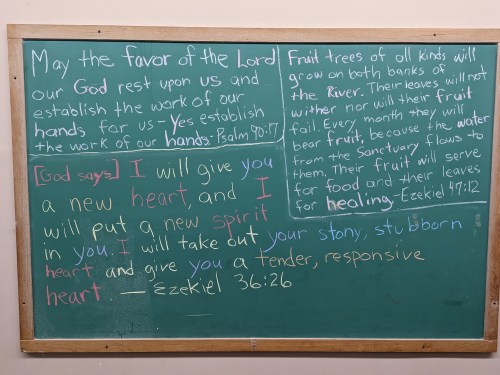 May the favor of the Lord
our God rest upon us and
establish the work of our
hands for us - Yes establish
the work of our hands. Psalm 90:17
Fruit trees of all kinds will
grow on both banks of
the River. Their leaves will not
wither nor will their fruit
fail. Every month they will
bear fruit, because the water
from the Sanctuary flows to
them. Their fruit will serve
for food and their leaves
for healing. - Ezekiel 47:12
[God says] I will give you
a new heart, and I
will put a new spirit
in you. I will take out your stony, stubborn
heart and give you a tender, responsive
heart. — Ezekiel 36:26